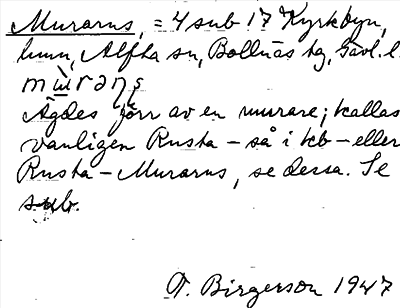 Murarns, = 4 sub 17 Kyrkbyn,
hmn, Alfta sn, Bollnäs tg, Gävl. l.
Ägdes förr av en murare; kallas
vanligen Rusta – så i kb – eller
Rusta – Murarns, se dessa. Se
sub.
T. Birgerson 1947